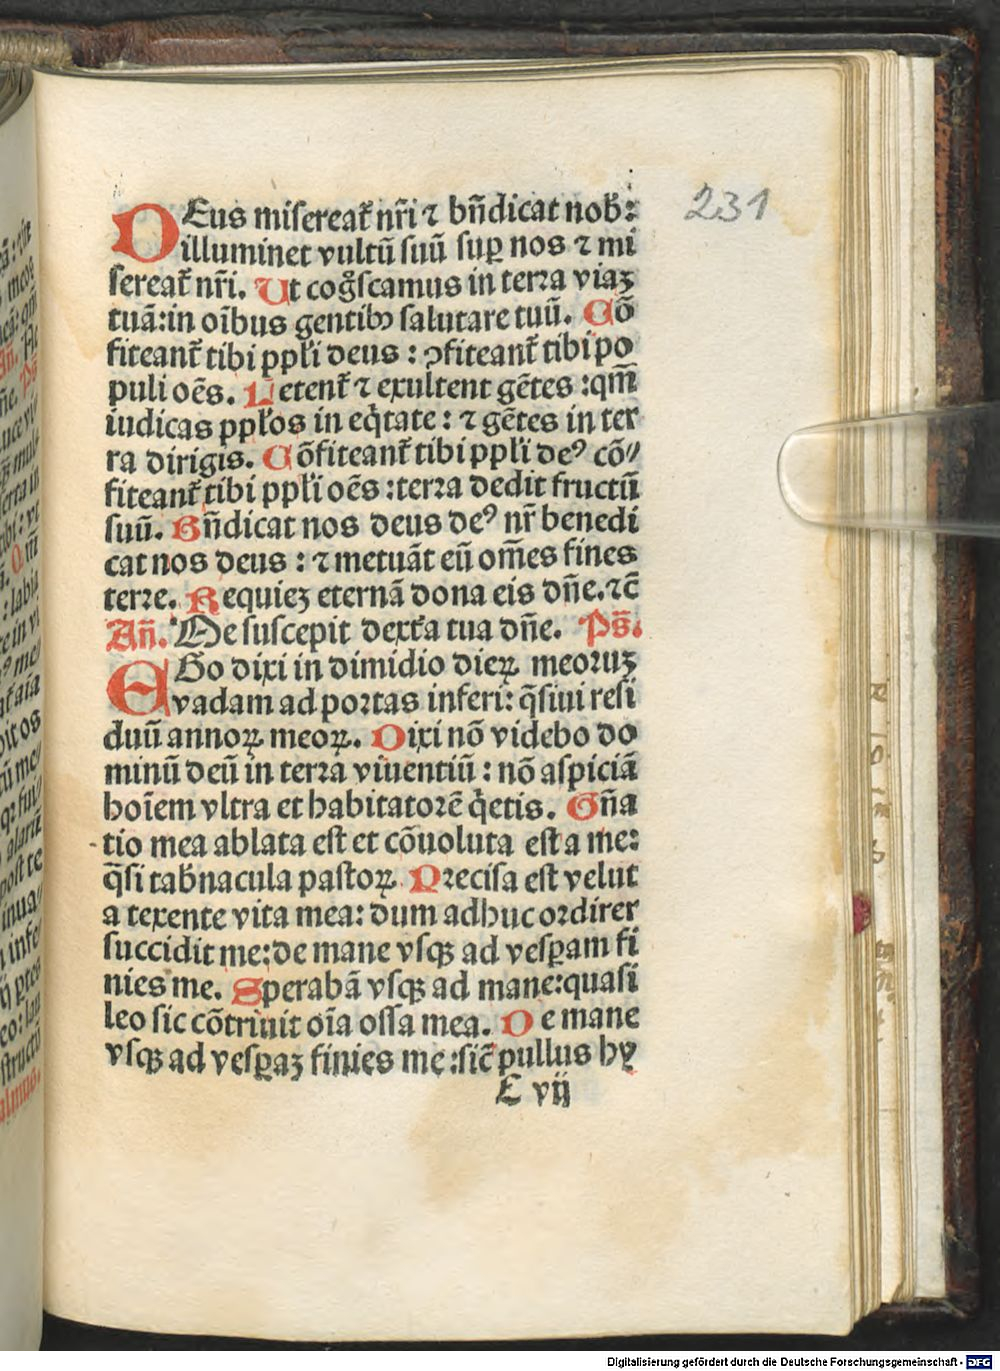 231
DEus misereat᷑ nr̃i ⁊ bñdicat nob̾:
illuminet vultũ suũ suꝑ nos ⁊ mi
sereat᷑ nr̃i. Ut cog̃scamus in terra viaꝫ
tuã: in oĩbus gentibꝰ salutare tuũ. Cõ
fiteant᷑ tibi ppl̓i deus: ꝯfiteant᷑ tibi po
puli oẽs. Letent᷑ ⁊ exultent gẽtes: qm̃
iudicas ppl̓os in eq̇tate: ⁊ gẽtes in ter
ra dirigis. Cõfiteant᷑ tibi ppl̓i deꝰ cõ⸗
fiteant᷑ tibi ppl̓i oẽs: terra dedit fructũ
suũ. Bñdicat nos deus deꝰ nr̃ benedi
cat nos deus: ⁊ metuãt eũ om̃es fines
terre. Requieꝫ eternã dona eis dñe. ⁊c̃
Añ. Me suscepit dext᷑a tua dñe. Ps̃.
EGo dixi in dimidio dieꝝ meoruꝫ
vadam ad portas inferi: q̃siui resi
duũ annoꝝ meoꝝ. Dixi nõ videbo do
minũ deũ in terra viuentiũ: nõ aspiciã
hoĩem vltra et habitatorẽ q̇etis. Gña
tio mea ablata est et cõuoluta est a me:
q̃si tab̾nacula pastoꝝ. Precisa est velut
a texente vita mea: dum adhuc ordirer
succidit me: de mane vsqꝫ ad vesꝑam fi
nies me. Sperabã vsqꝫ ad mane: quasi
leo sic cõtriuit oĩa ossa mea. De mane
vsqꝫ ad vesꝑaꝫ finies me: sic̃ pullus hy
E vij
Digitalisierung gefördert durch die Deutsche Forschungsgemeinschaft - DFG